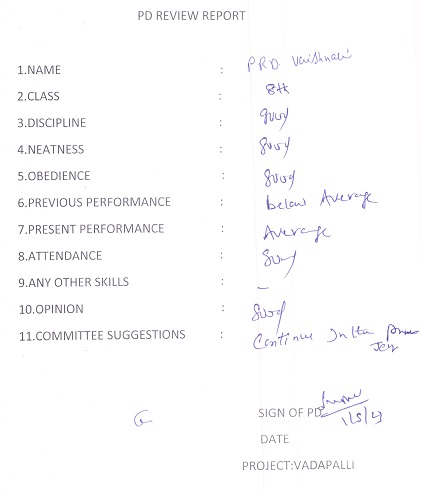 PD REVIEW REPORT
1.NAME : PRD Vaishnavi
2.CLASS : 8th
3.DISCIPLINE : good
4.NEATNESS : good
5.OBEDIENCE : good
6.PREVIOUS PERFORMANCE : below Average
7.PRESENT PERFORMANCE : Average
8.ATTENDANCE : good
9.ANY OTHER SKILLS : –
10.OPINION : good
11.COMMITTEE SUGGESTIONS : Continue In
SIGN OF PD
DATE
PROJECT:VADAPALLI